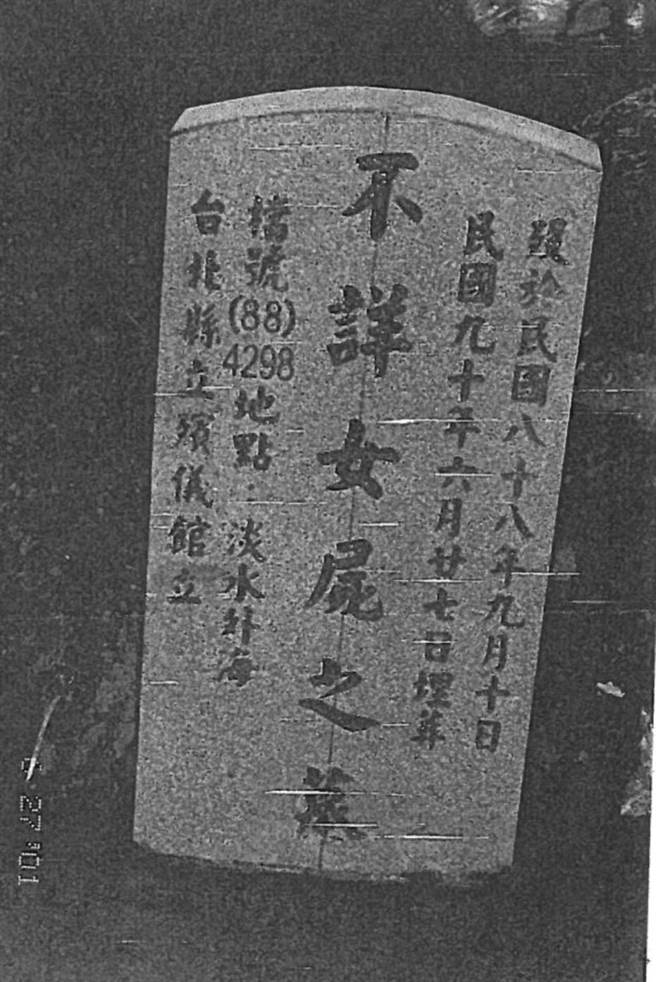 歿於民國八十八年九月十日
民國九十年六月廿七日埋葬
不詳女屍之墓
檔號(88)4298地點:淡水外海
台北縣立殯儀館立
6 27 '01